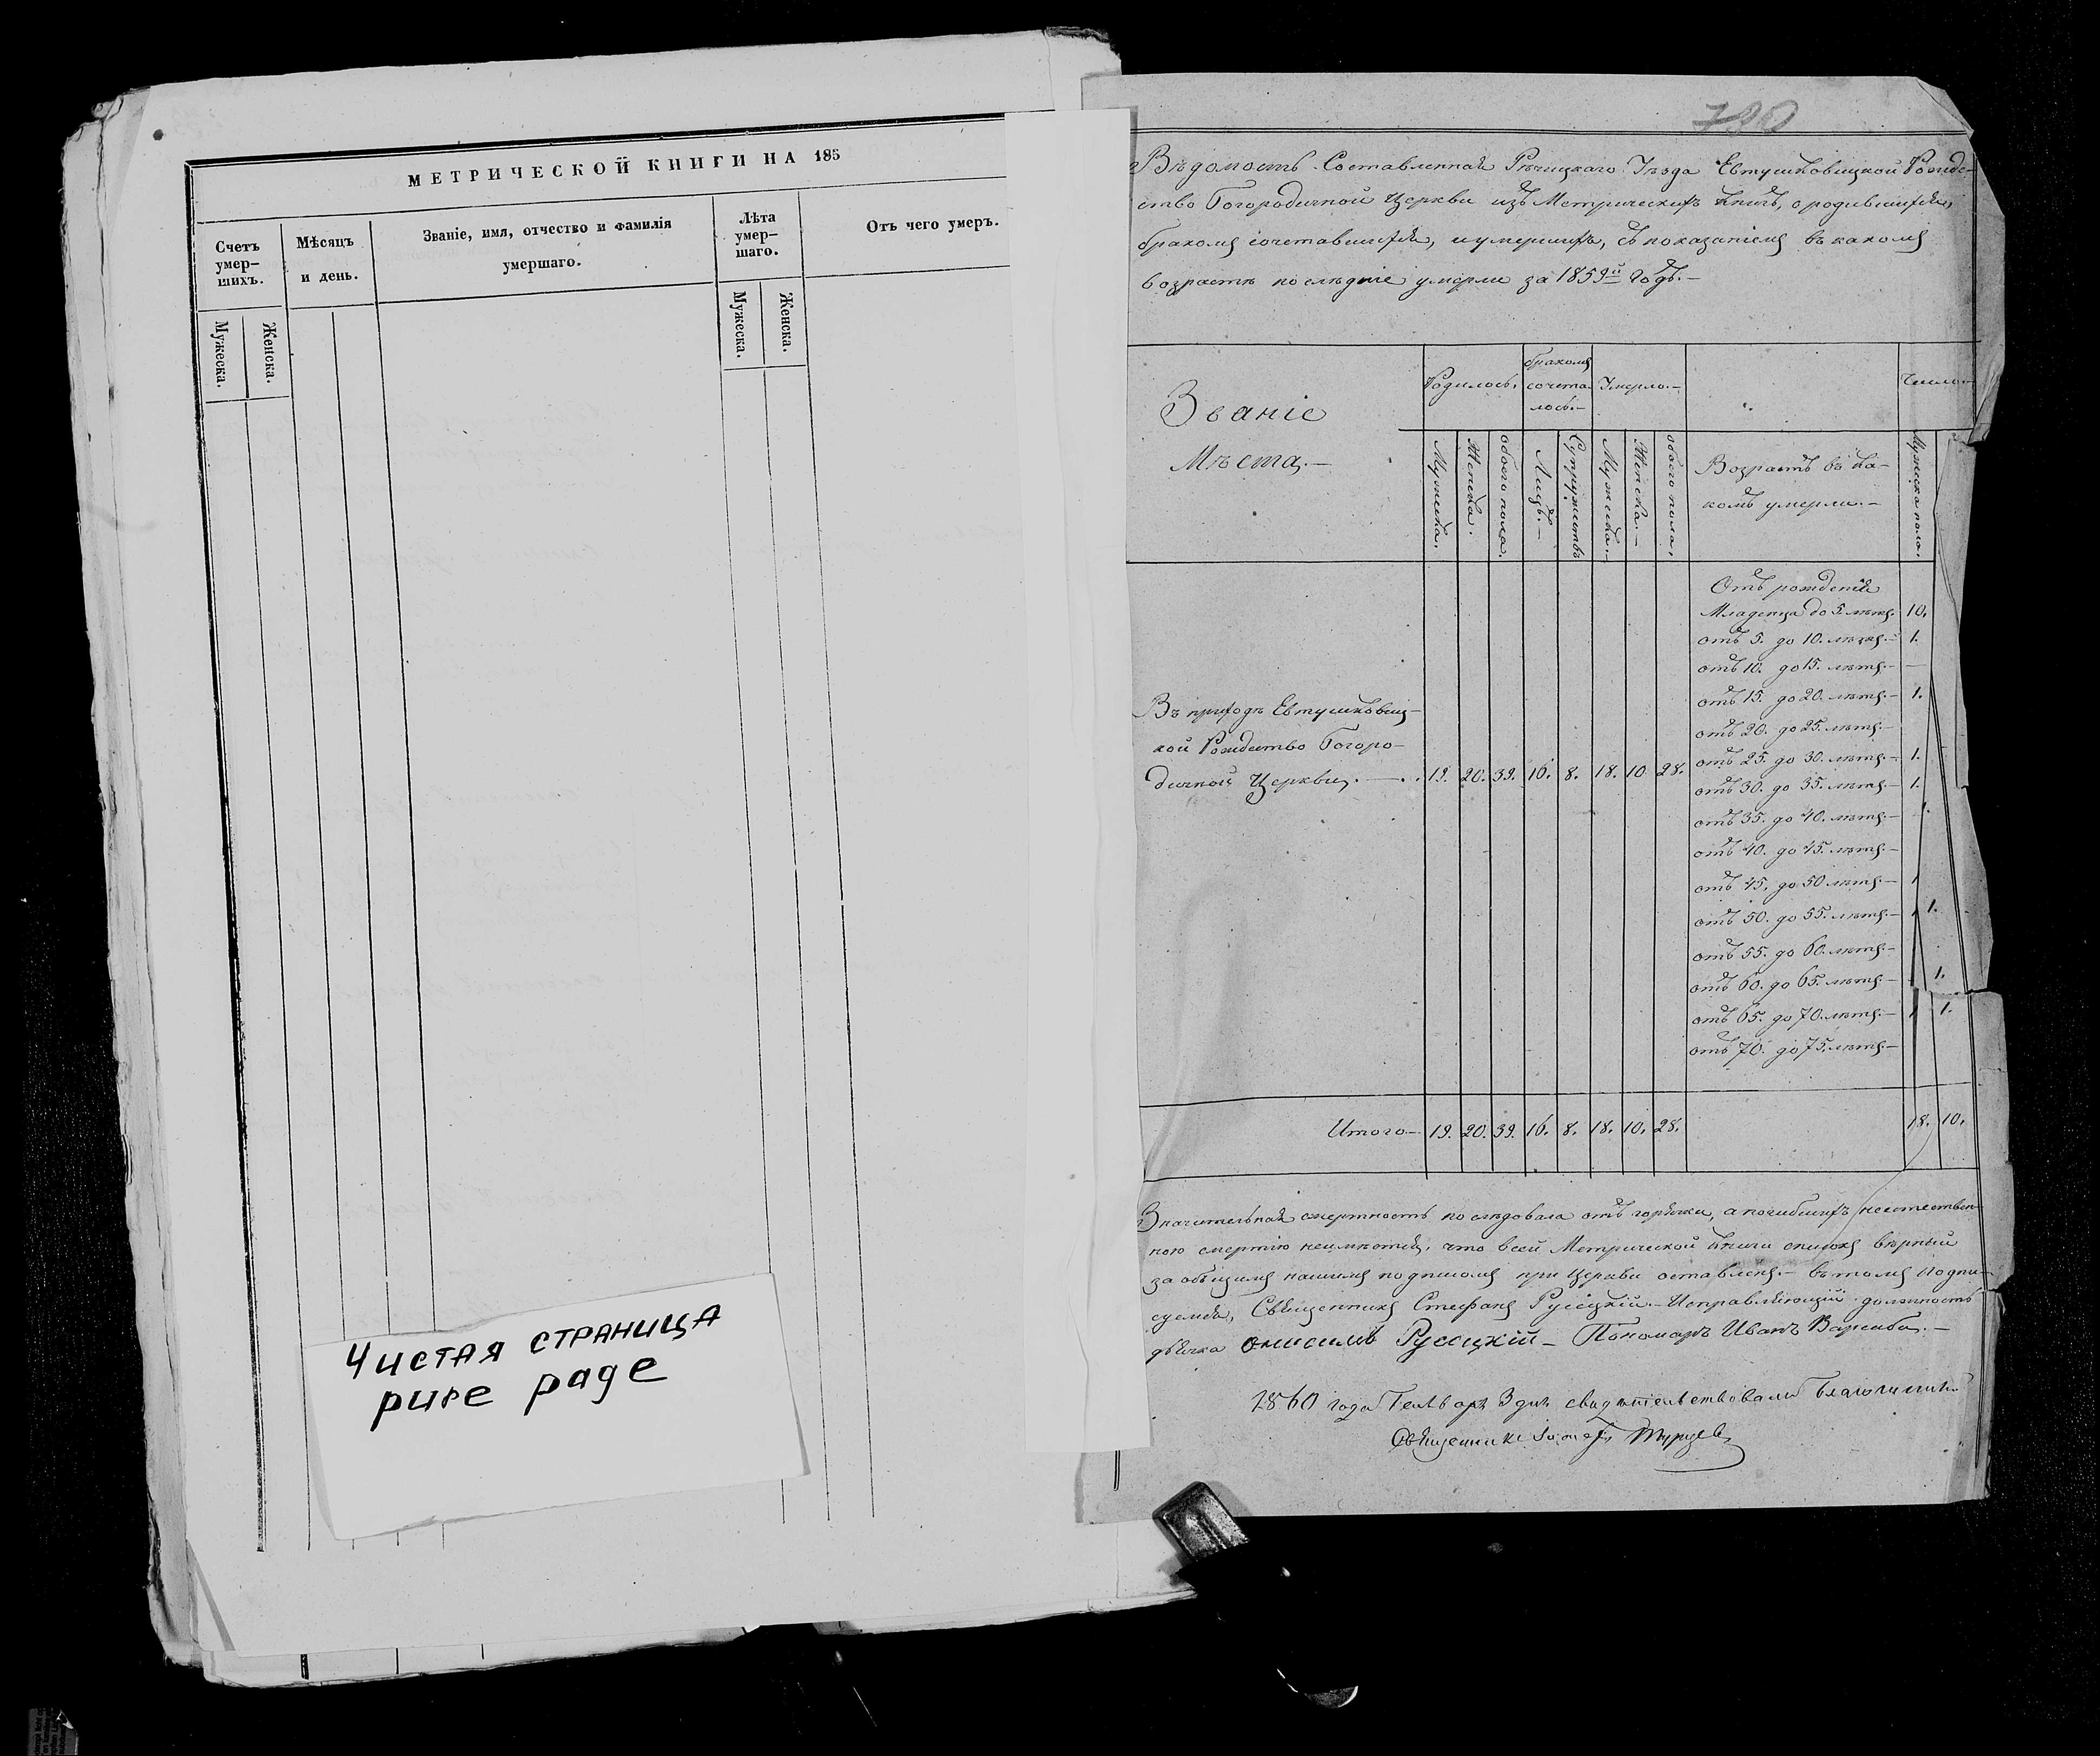 МЕТРИЧЕСКОЙ КНИГИ НА 185
Счетъ умер–шихъ.
Мѣсяцъ и день.
Званіе, имя, отчество и фамилія умершаго.
Лѣта умер–шаго.
Отъ чего умеръ.
Мужеска.
Женска.
Мужеска.
Женска.
Чистая страница
pure page
790
Вѣдомость Составленная Рѣчицкаго Уѣзда Евтушковицкой Рождe–
ство Богородичной Церкви изъ Метрическихъ книгъ, о родившихся,
бракомъ сочетавшихся, и умершихъ, съ показаніемъ въ какомъ
возрастѣ послѣдніе умерли за 1859й годъ.–
Званіе
Мѣста.–
Родилось.
бракомъ сочета–лось.–
Умерло.–
Число.–
Мужеска.
Женска.
обоего пола.
Лицъ.–
Супружествъ
Мужеска.–
Женска.–
обоего пола.
Возрастъ въ ка–
комъ умерли.–
Мужеска пола.
Отъ рожденія
Младенца до 5. лѣтъ. 10.
отъ 5. до 10. лѣтъ.– 1.
отъ 10. до 15. лѣтъ.– —
отъ 15. до 20. лѣтъ.– 1.
отъ 20. до 25. лѣтъ.–
отъ 25. до 30. лѣтъ.– 1.
отъ 30. до 35. лѣтъ.– 1.
отъ 35. до 40. лѣтъ.– 1.
отъ 40. до 45. лѣтъ.–
отъ 45. до 50 лѣтъ.– 1
отъ 50. до 55. лѣтъ.– 1 1.
отъ 55. до 60. лѣтъ.–
отъ 60. до 65. лѣтъ.– 1.
отъ 65. до 70. лѣтъ.– 1 1.
отъ 70. до 75. лѣтъ.–
Въ приходѣ Евтушковиц–
кой Рождество Богоро–
дичной Церкви.— 19. 20. 39. 16. 8. 18. 10 28.
Итого— 19. 20. 39. 16. 8. 18. 10. 28. 18. 10.
Значительная смертность послѣдовала отъ горячки, а погибшихъ неестествен–
ною смертію неимѣется, что всей Метрической книги списокъ вѣрный
за общимъ нашимъ подписомъ при Церкви оставленъ.– въ томъ подпи–
суемся, Священникъ Стефанъ Русецкій.– Исправляющій должность
дьячка Онисимъ Русецкій – Пономарь Иванъ Варемба.–
1860 года Генваря 3 дня свидѣтельствовалъ Благочинный
Священникъ